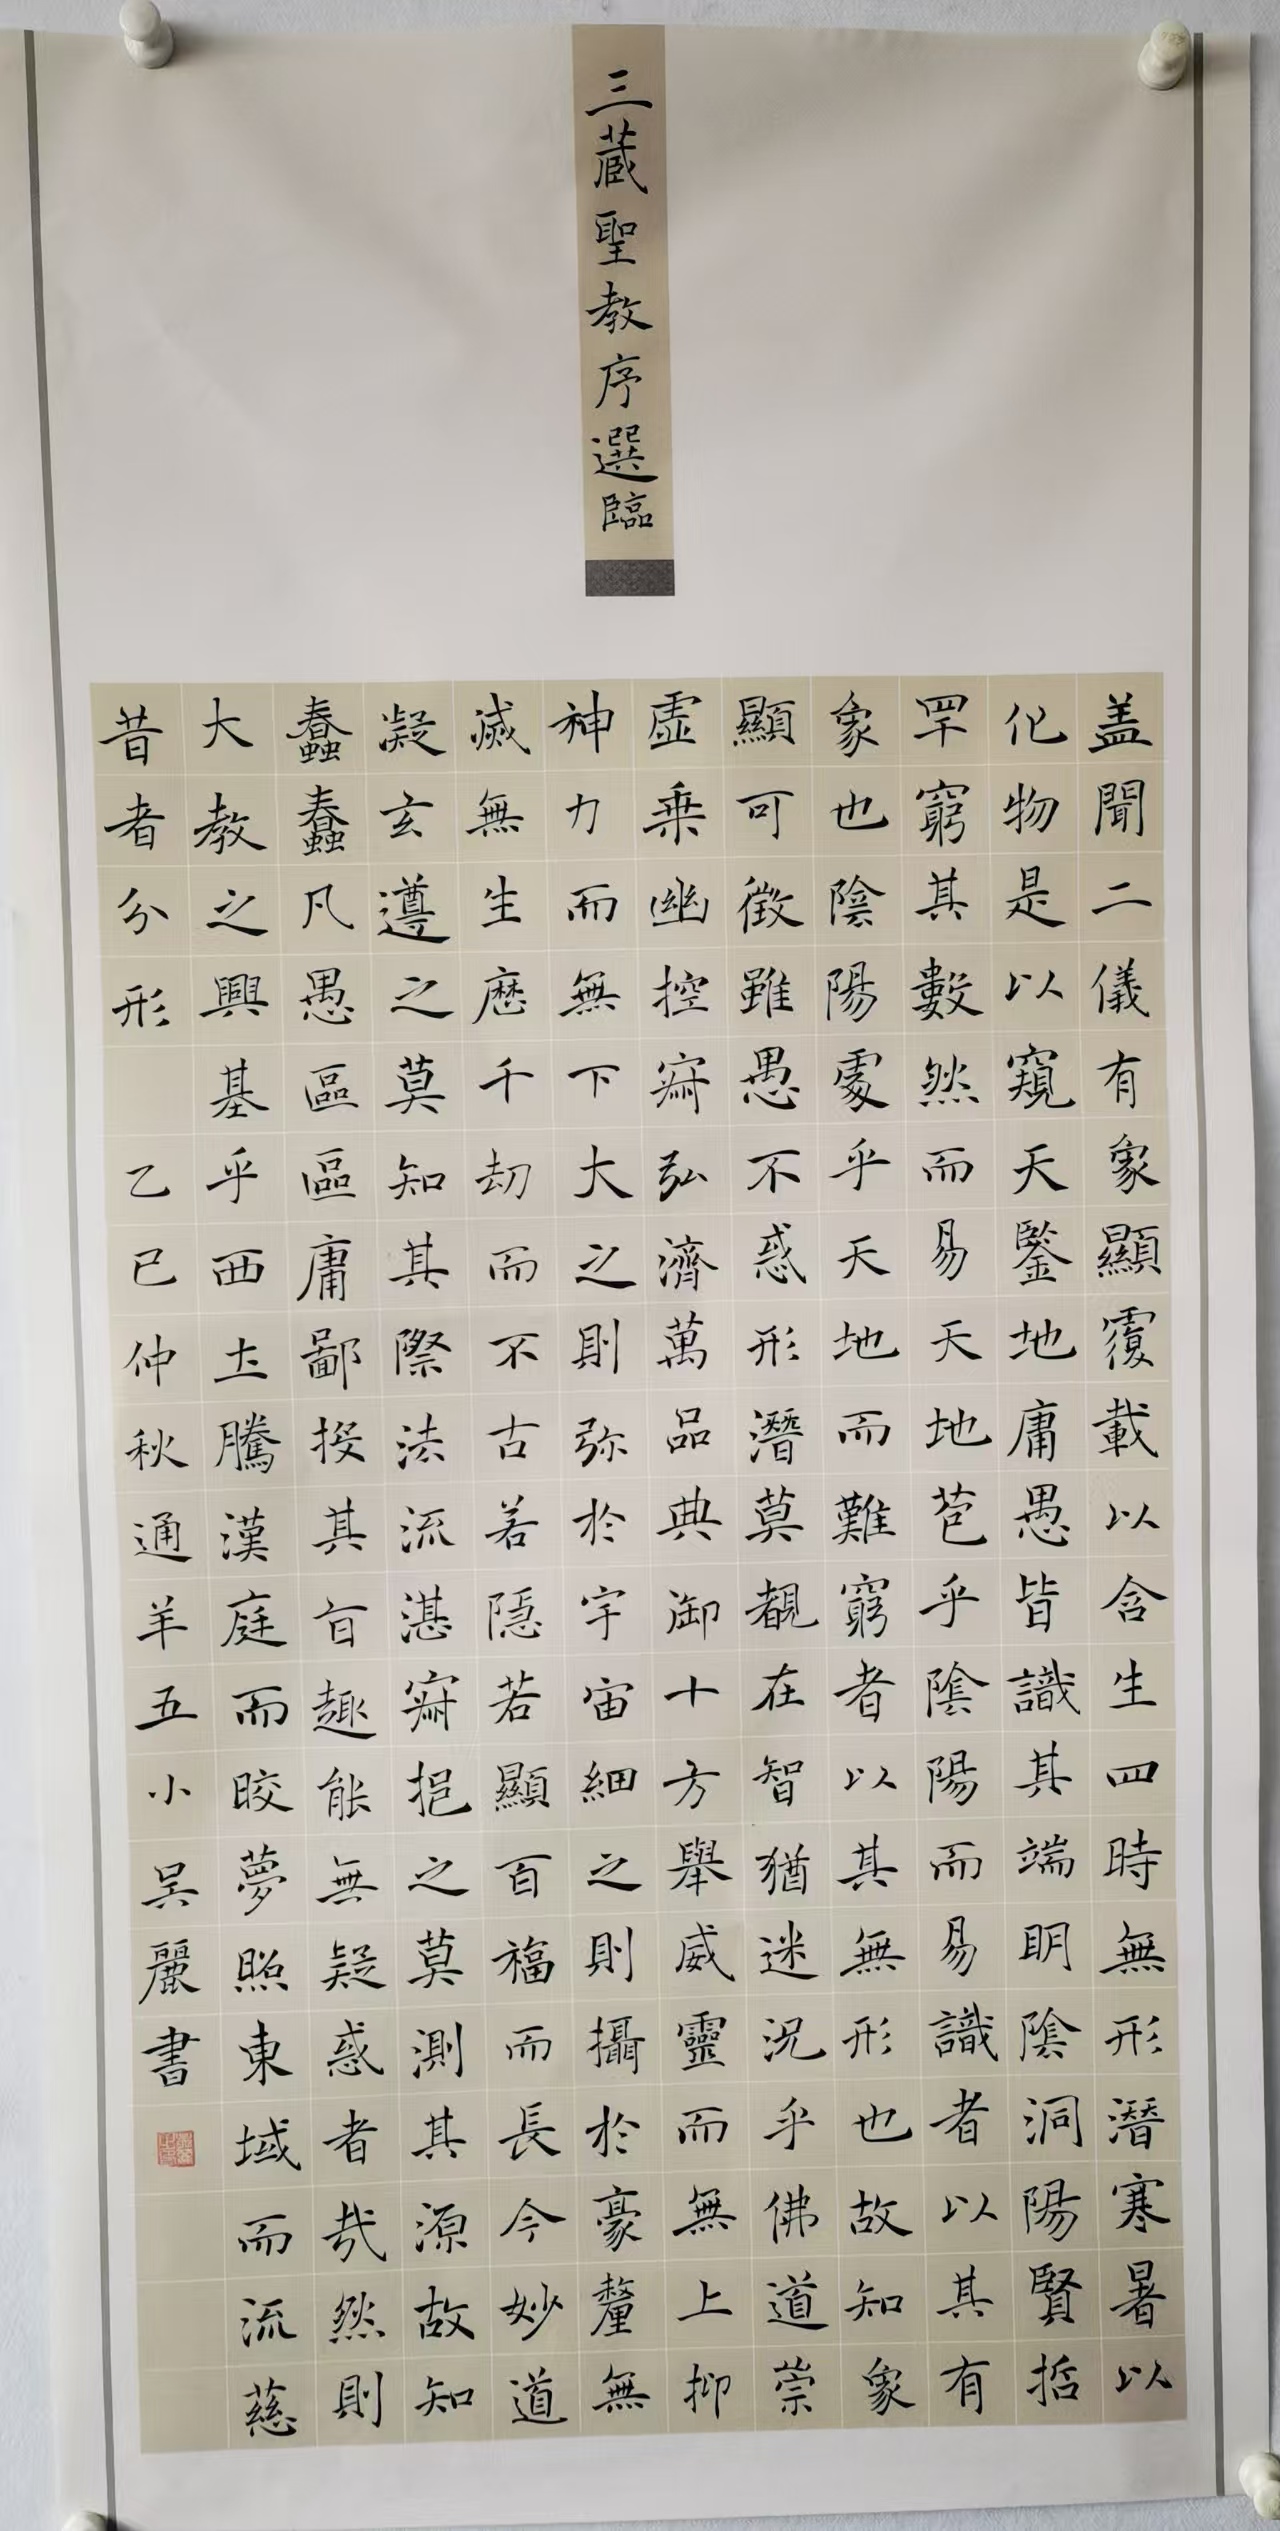 三藏聖教序選臨
盖聞二儀有象顯覆載以含生四時無形潛寒暑以
化物是以窺天鑒地庸愚皆識其端明陰洞陽賢哲
罕窮其數然而易天地苞乎陰陽而易識者以其有
象也陰陽處乎天地而難窮者以其無形也故知象
顯可徵雖愚不惑形潛莫覩在智猶迷況乎佛道崇
虛乘幽控寂弘濟萬品典御十方舉威靈而無上抑
神力而無下大之則弥於宇宙細之則攝於豪釐無
滅無生歷千劫而不古若隱若顯百福而長今妙道
凝玄遵之莫知其際法流湛寂挹之莫測其源故知
蠢蠢凡愚區區庸鄙投其旨趣能無疑惑者哉然則
大教之興基乎西土騰漢庭而晈夢照東域而流慈
昔者分形 乙巳仲秋通羊五小吴麗書